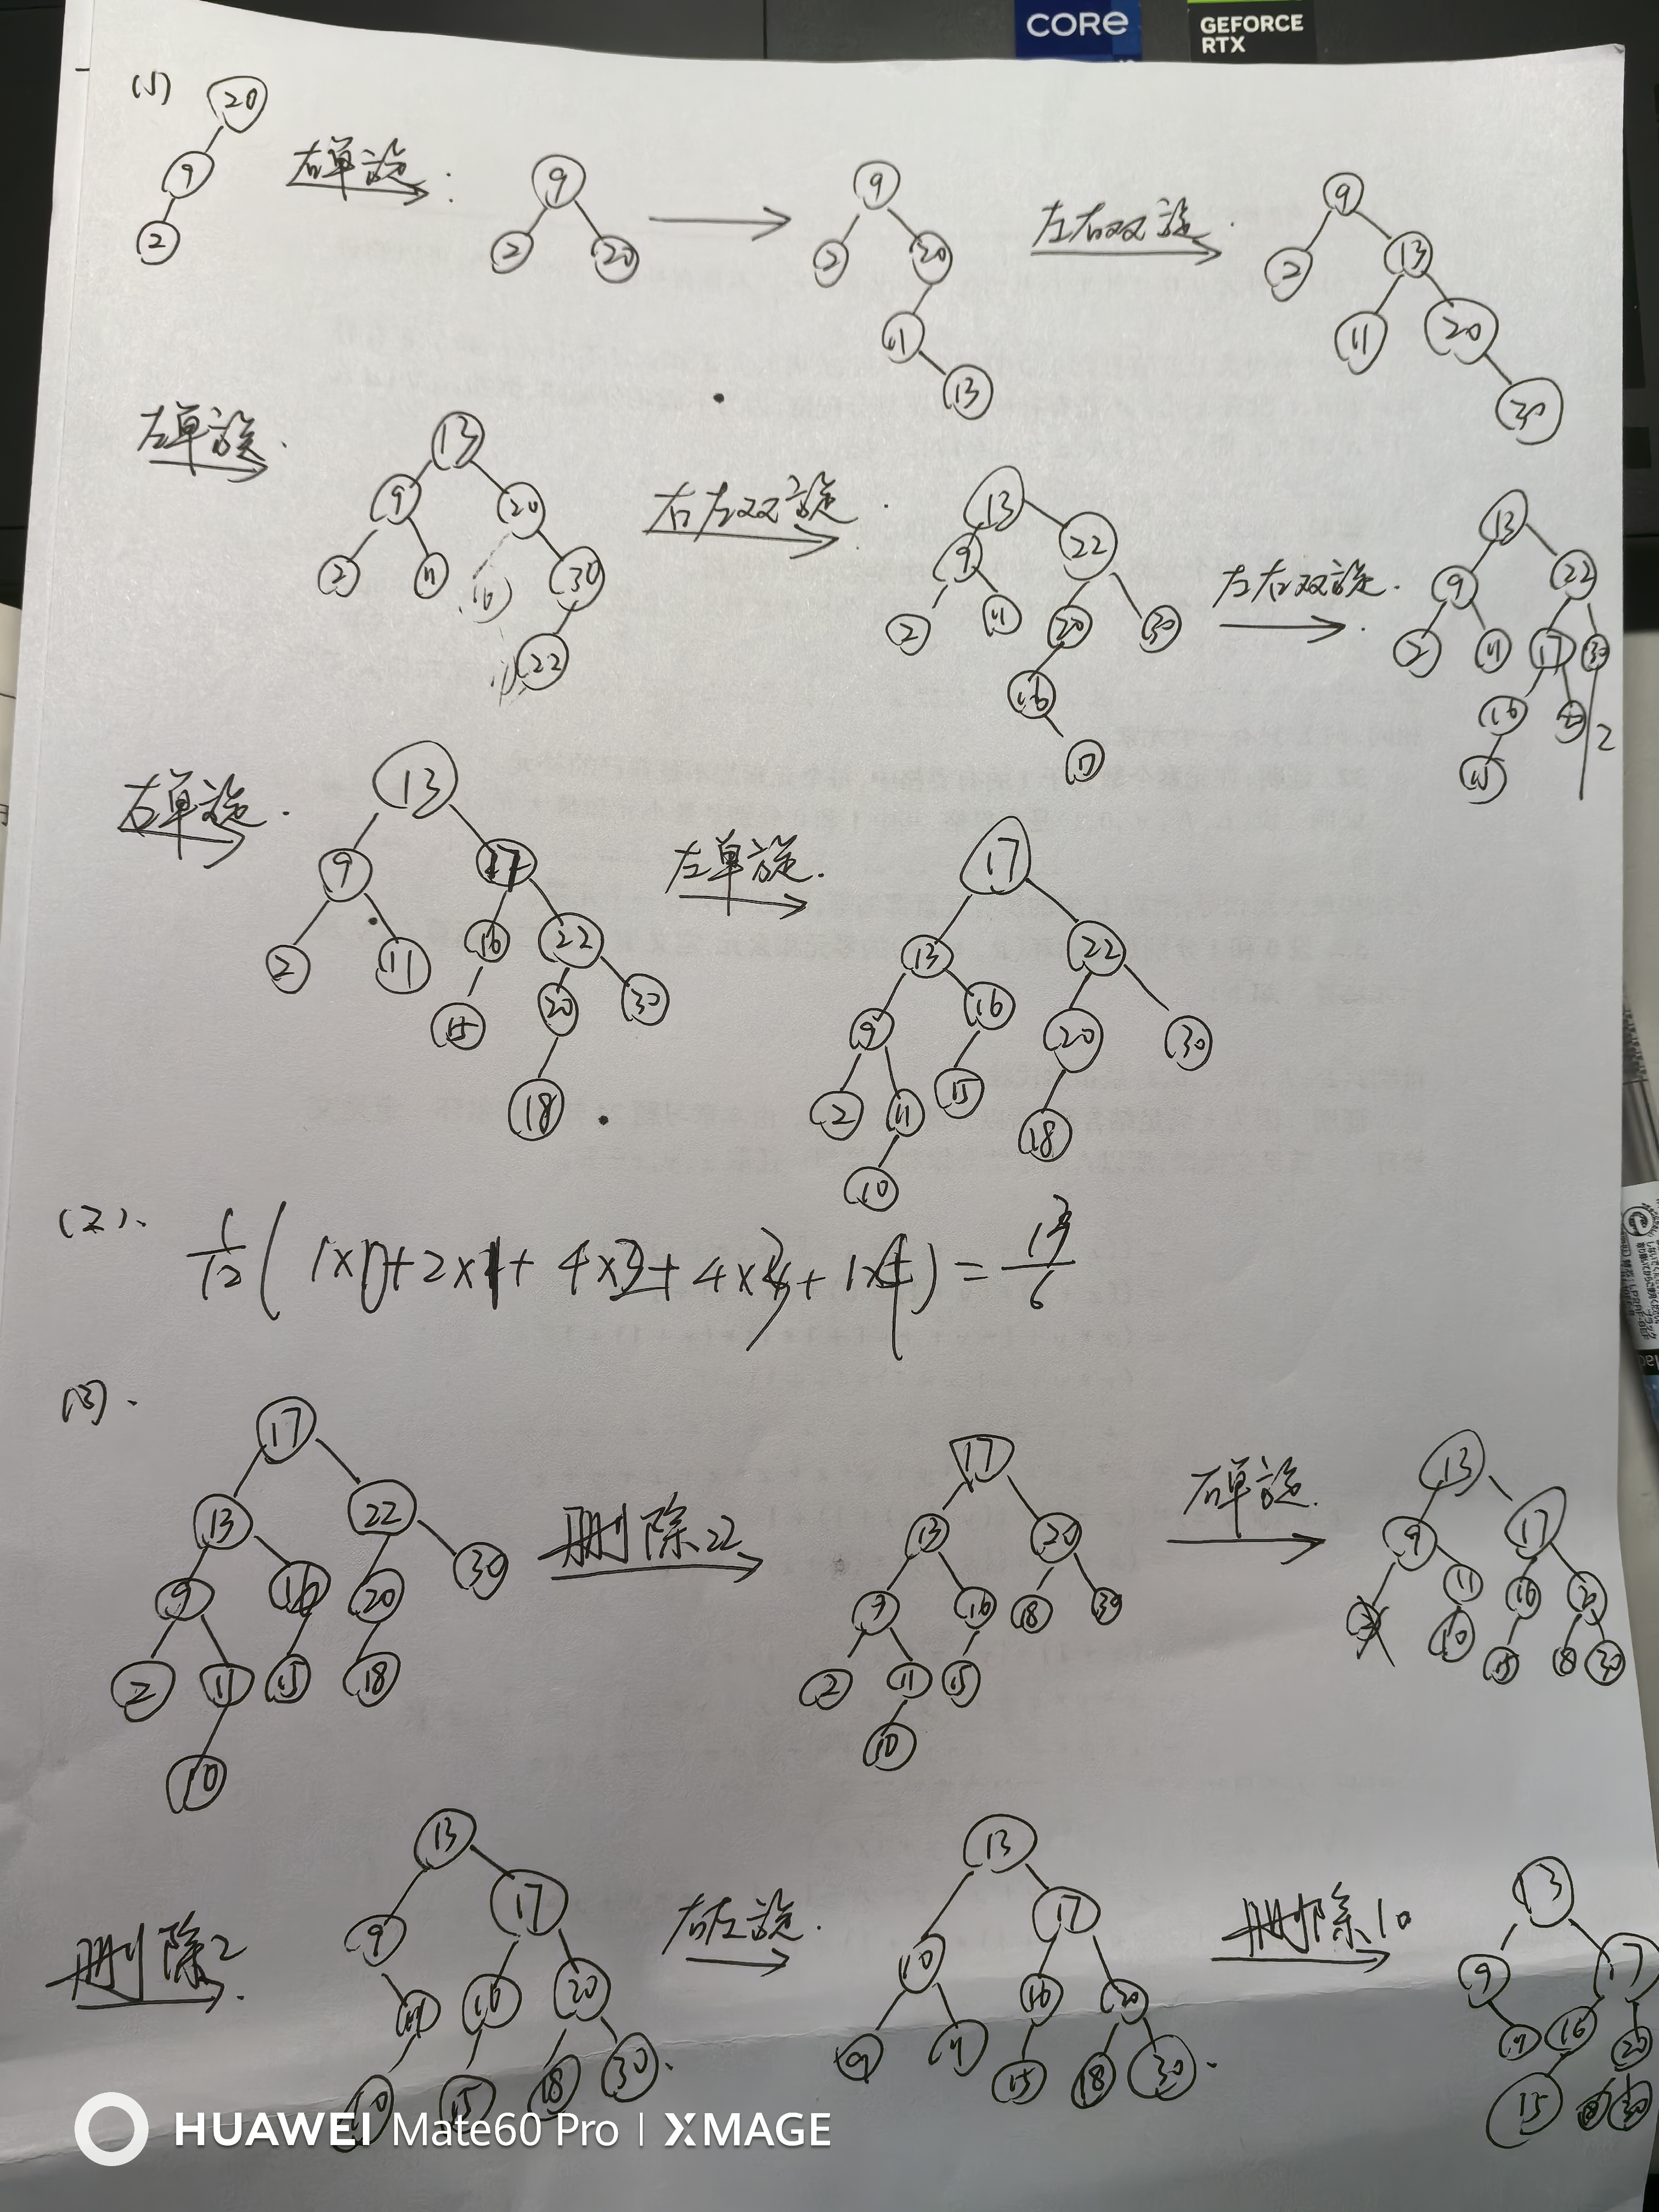 CORE
GEFORCE
RTX
(1)
20
9
2
右单旋:
9
2 20
9
2 20
11
13
左右双旋.
9
2 13
11 20
30
左单旋.
13
9 20
2 11 30
22
右左双旋.
13
9 22
2 11 20 30
16
17
左右双旋.
13
9 22
2 11 17 30
16
15
左单旋.
13
9 17
2 11 16 22
15 20 30
18
左单旋.
17
13 22
9 16 20 30
2 11 15 18
10
(2).
(3).
17
13 22
9 16 20 30
2 11 15 18
10
删除22
17
13 20
9 16 18 30
2 11 15
10
右单旋.
13
9 17
11 16 20
10 15 18 30
删除2.
13
9 17
11 16 20
10 15 18 30.
右左旋.
13
10 17
9 11 16 20
15 18 30.
删除10
13
9 17
11 16 20
15
HUAWEI Mate60 Pro | XMAGE